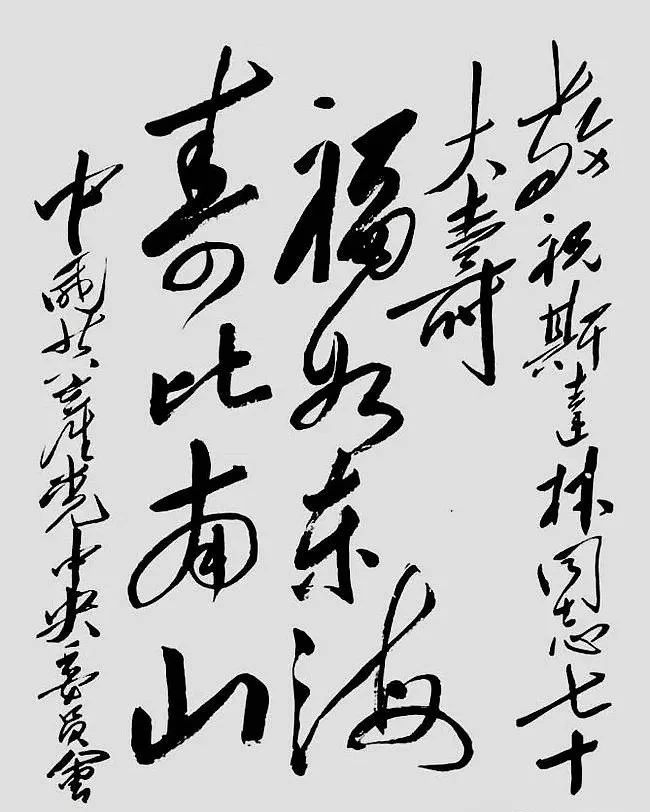 敬祝斯達林同志七十
大壽
福如东海
寿比南山
中國共产党中央委员會